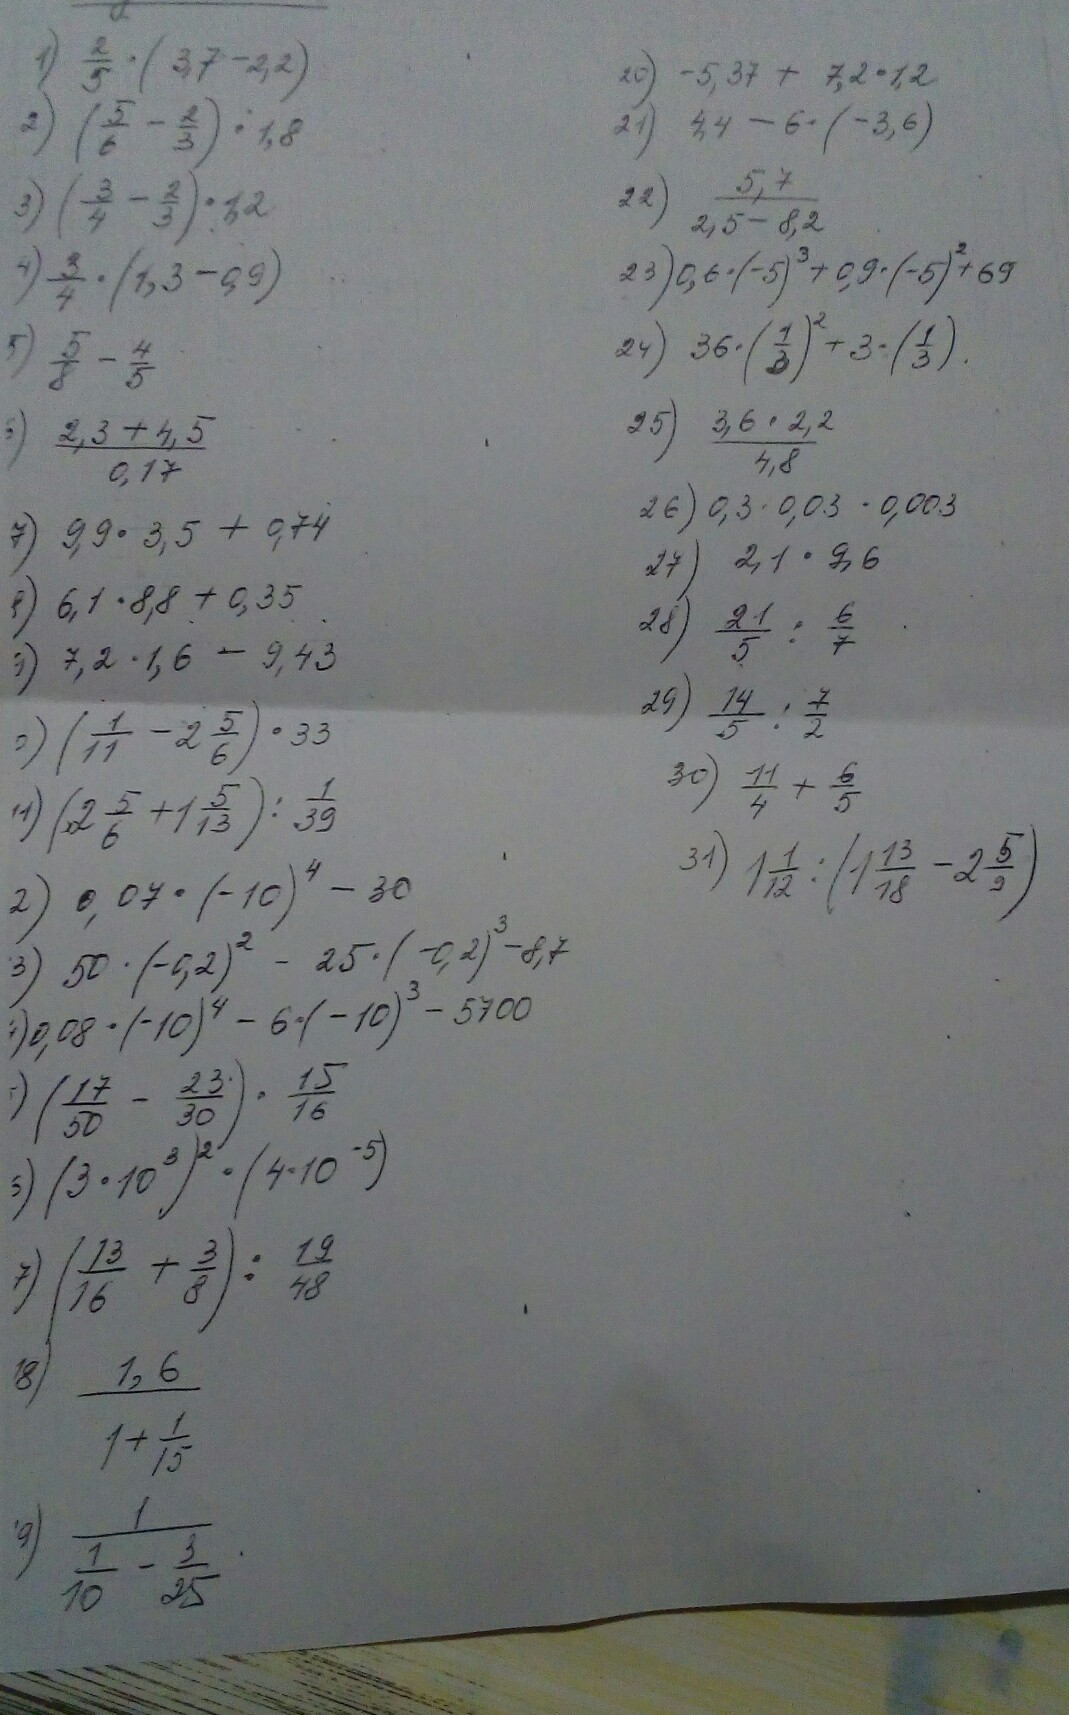 1) 2/5 · (3,7 - 2,2)
2) (5/6 - 2/3) · 1,8
3) (3/4 - 2/3) · 1,2
4) 3/4 · (1,3 - 0,9)
5) 5/8 - 4/5
6) (2,3 + 4,5)/0,17
7) 9,9 · 3,5 + 0,74
8) 6,1 · 8,8 + 0,35
9) 7,2 · 1,6 - 9,43
0) (1/11 - 2 5/6) · 33
11) (2 5/6 + 1 5/13) : 1/39
2) 0,07 · (-10)^4 - 30
3) 50 · (-0,2)^2 - 25 · (-0,2)^3 - 8,7
) 0,08 · (-10)^4 - 6 · (-10)^3 - 5700
) (17/50 - 23/30) · 15/16
) (3 · 10^3)^2 · (4 · 10^-5)
7) (13/16 + 3/8) : 19/48
18) 1,6/(1 + 1/15)
19) 1/(1/10 - 3/25)
20) -5,37 + 7,2 · 1,2
21) 4,4 - 6 · (-3,6)
22) 5,7/(2,5 - 8,2)
23) 0,6 · (-5)^3 + 0,9 · (-5)^2 + 69
24) 36 · (1/3)^2 + 3 · (1/3).
25) (3,6 · 2,2)/4,8
26) 0,3 · 0,03 · 0,003
27) 2,1 · 9,6
28) 21/5 : 6/7
29) 14/5 : 7/2
30) 11/4 + 6/5
31) 1 1/12 : (1 13/18 - 2 5/9)